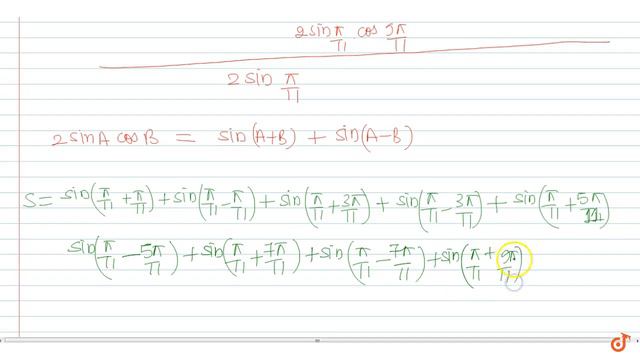 2 sin π/11 cos 5π/11
2 sin π/11
2 sin A cos B = sin(A+B) + sin(A−B)
S = sin(π/11 + π/11) + sin(π/11 − π/11) + sin(π/11 + 3π/11) + sin(π/11 − 3π/11) + sin(π/11 + 5π/11)
sin(π/11 − 5π/11) + sin(π/11 + 7π/11) + sin(π/11 − 7π/11) + sin(π/11 + 9π/11)